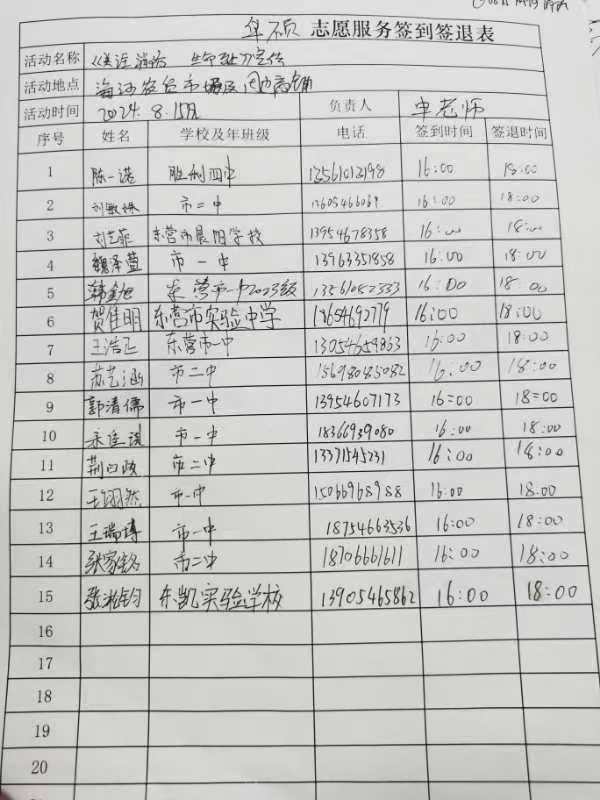 志愿服务签到签退表
活动名称
活动地点
活动时间 2024.8.15日 负责人 申老师
序号 姓名 学校及年班级 电话 签到时间 签退时间
1 陈一诺 胜利四中 13561012198 16:00 18:00
2 市二中 16:00 18:00
3 刘艺菲 东营市晨阳学校 13954678358 16:00 18:00
4 魏泽萱 市一中 13963351858 16:00 18:00
5 韩金旭 东营市一中2023级 16:00 18:00
6 贺佳明 东营市实验中学 18654692779 16:00 18:00
7 王浩正 东营市一中 13054659853 16:00 18:00
8 苏艺涵 市二中 15698085082 16:00 18:00
9 郭清儒 市一中 13954607173 16=00 18=00
10 市一中 18366939080 16:00 18:00
11 市二中 13371545231 16:00 18:00
12 王翊然 市一中 15066968988 16:00 18:00
13 王瑞博 市一中 18754663536 16:00 18:00
14 张家铭 市二中 18706661611 16:00 18:00
15 东凯实验学校 13905465862 16:00 18:00
16
17
18
19
20